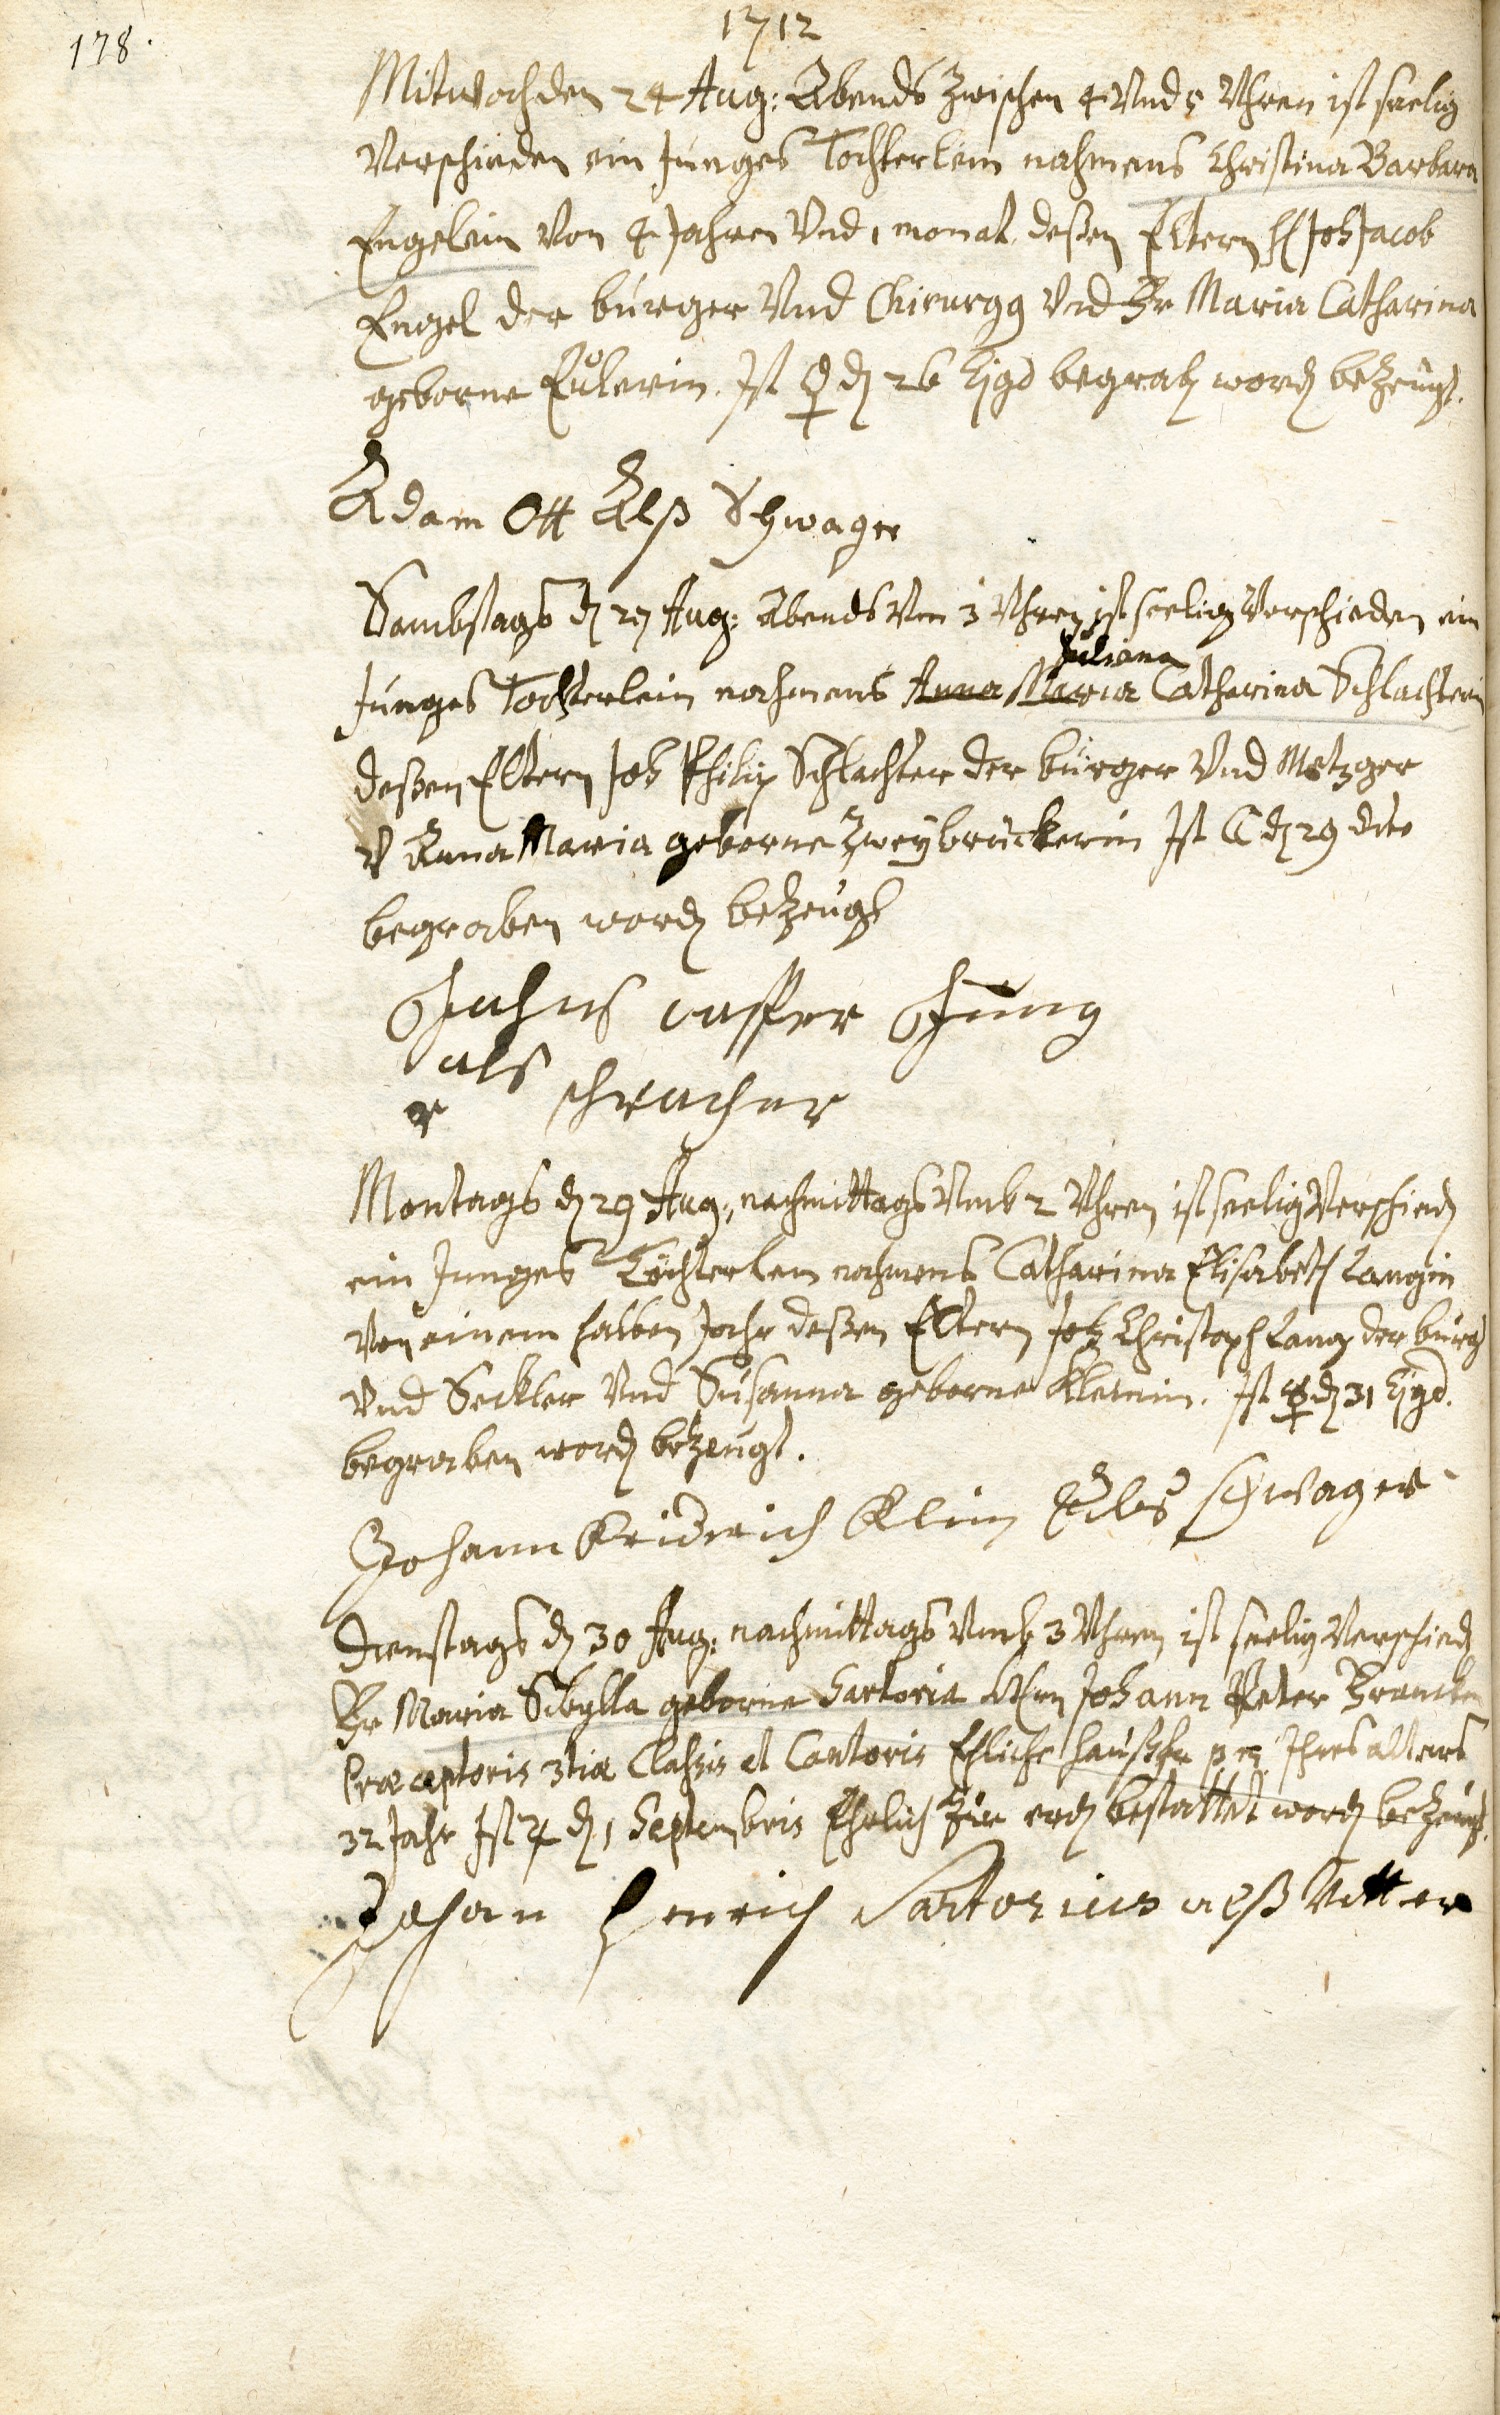 178.
1712
Mitwoch den 24 Aug: Abends zwischen 4 Vnd 5 Vhren ist seelig
Verschieden ein Junges Tochterlein nahmens Christina Barbara
Engelein Von 4 Jahren Vnd 1 monat deßen Eltern H Joh Jacob
Engel der burger Vnd Chirurgg Vnd Fr Maria Catharina
geborne Eulerin. Ist ♀ dē 26 Ejgd begrab word bezeugt.
Adam Ott Alß Schwager
Sambstags dē 27 Aug: Abends Vm 3 Vhren ist seelig Verschieden ein
Juliana
Junges Tochterlein nahmens Anna Maria Catharina Schlachterin
deßen Eltern Joh Philip Schlachter der burger Vnd Metzger
V Anna Maria geborne Zweybrückerin Ist ☾ dē 29 dito
begraben word bezeugt
Johns casper Jung
als
schwacher
Montags dē 29 Aug: nachmittags Vmb 2 Vhren ist seelig Verschied
ein Junges Töchterlein nahmens Catharina Elisabeth Langin
Von einem halben Jahr deßen Eltern Joh Christoph Lang der burg
Vnd Seckler Vnd Susanna geborne Kleinin. Ist ☿ dē 31 Ejgd.
begraben word bezeugt.
Johann Fridrich Klein Als schwager
Dienstags dē 30 Aug: nachmittags Vmb 3 Vhren ist seelig Verschied
Fr Maria Sibylla geborne Sartoria Johann Peter Francken
Præceptoris 3tiæ Classis et Cantoris Ehliche haußfr Ihres alters
32 Jahr Ist ♃ dē 1 Septembris Ehrlich Zur erd bestattet word bezeugt.
Johan Henrich Sartorius alß Vatter